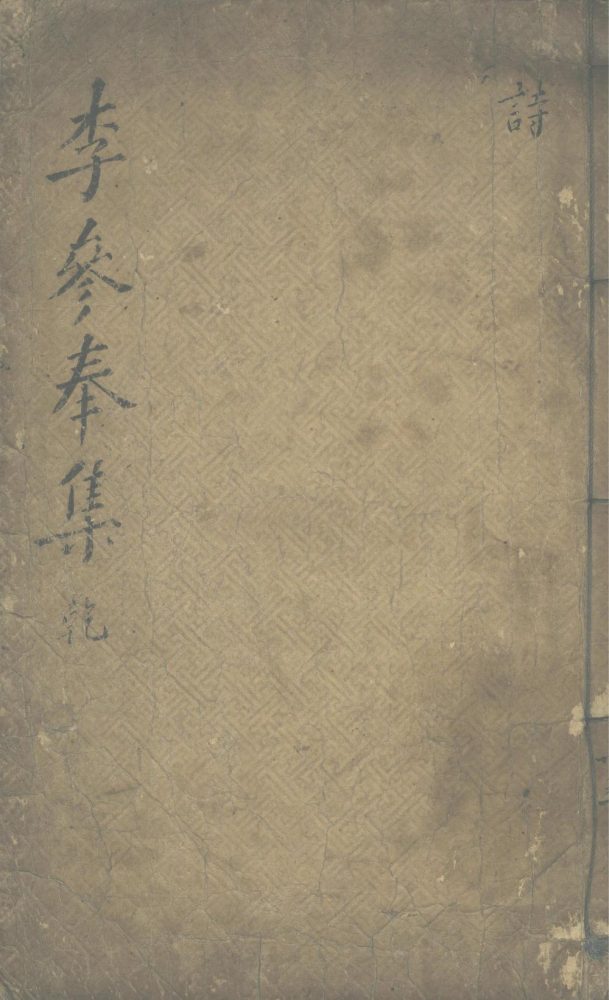 詩
李參奉集 乾